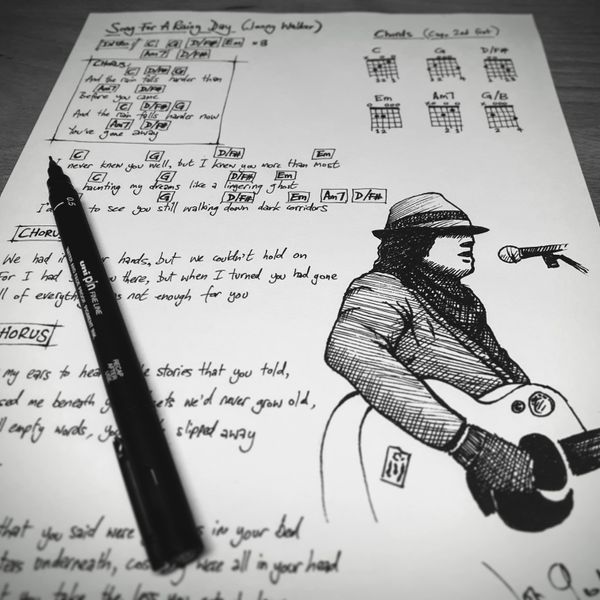 Song For A Rainy Day (Jonny Walker)
INTRO / C G D/F# Em × 3
Am7 D/F#
CHORUS:
C D/F# G
And the rain falls harder than
Am7 D/F#
Before you came
C D/F# G
And the rain falls harder now
Am7 D/F#
You've gone away
Chords (Capo 2nd Fret)
C G D/F#
Em Am7 G/B
C G D/F# Em
I never knew you well, but I knew you more than most
C G D/F# Em
haunting my dreams like a lingering ghost
G D/F# Em Am7 D/F#
to see you still walking down dark corridors
CHORUS
We had it hands, but we couldn't hold on
For I had there, but when I turned you had gone
ll of everything not enough for you
HORUS
my ears to hea the stories that you told,
sed me beneath we'd never grow old,
empty words, slipped away
that you said were in your bed
underneath, were all in your head
you take the less you
uni PIN FINE LINE
0.5